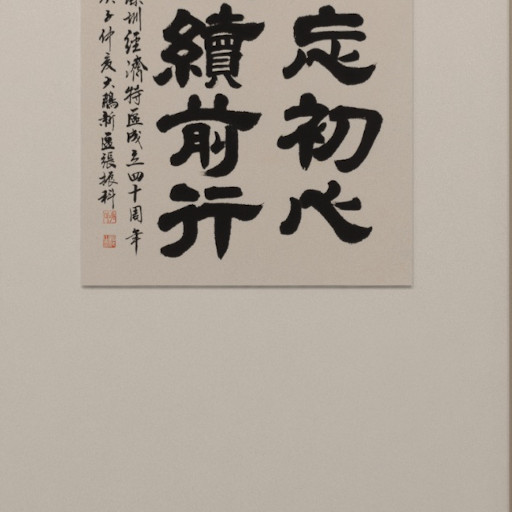 忘初心
續前行
圳經濟特區成立四十周年
子仲夏大鵬新區張振科